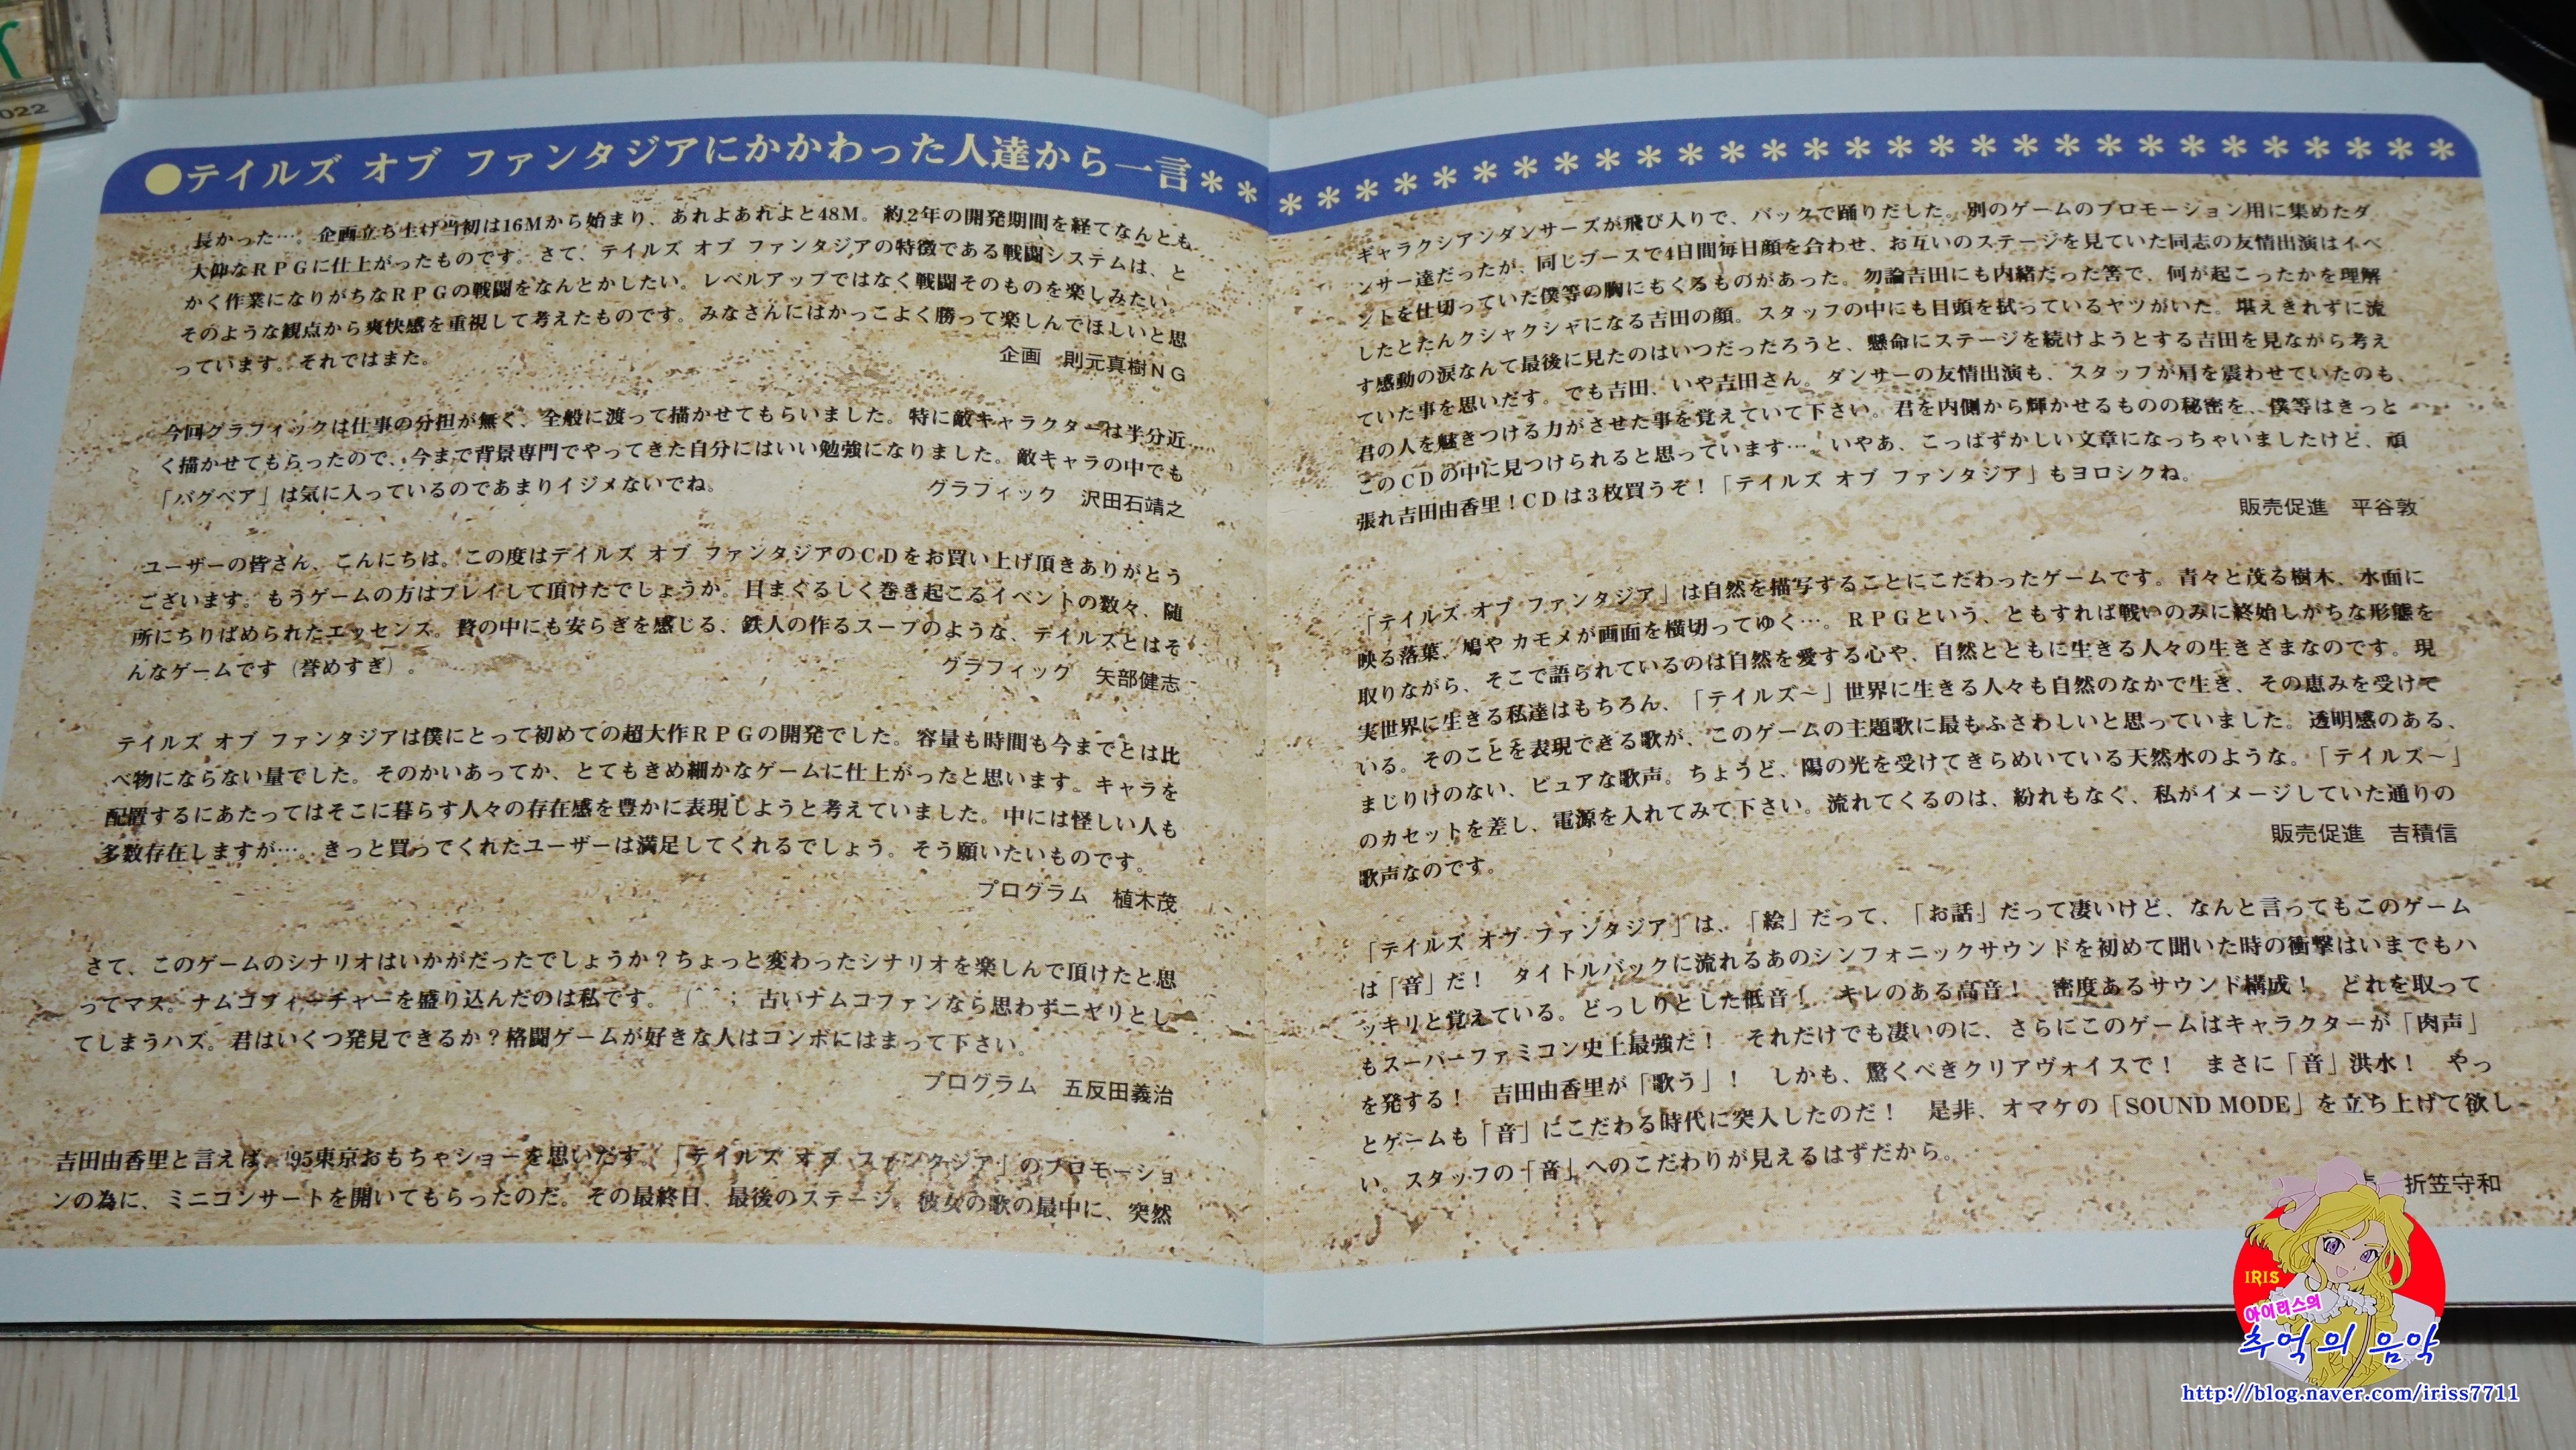 022
●テイルズ オブ ファンタジアにかかわった人達から一言＊＊＊＊＊＊＊＊＊＊＊＊＊＊＊＊＊＊＊＊＊＊＊＊＊＊＊＊＊＊＊
長かった…。企画立ち上げ当初は16Mから始まり、あれよあれよと48M。約2年の開発期間を経てなんとも
大仰なRPGに仕上がったものです。さて、テイルズ オブ ファンタジアの特徴である戦闘システムは、と
かく作業になりがちなRPGの戦闘をなんとかしたい。レベルアップではなく戦闘そのものを楽しみたい。
そのような観点から爽快感を重視して考えたものです。みなさんにはかっこよく勝って楽しんでほしいと思
っています。それではまた。
企画　則元真樹NG
今回グラフィックは仕事の分担が無く、全般に渡って描かせてもらいました。特に敵キャラクターは半分近
く描かせてもらったので、今まで背景専門でやってきた自分にはいい勉強になりました。敵キャラの中でも
「バグベア」は気に入っているのであまりイジメないでね。
グラフィック　沢田石靖之
ユーザーの皆さん、こんにちは。この度はテイルズ オブ ファンタジアのCDをお買い上げ頂きありがとう
ございます。もうゲームの方はプレイして頂けたでしょうか。目まぐるしく巻き起こるイベントの数々、随
所にちりばめられたエッセンス。贅の中にも安らぎを感じる、鉄人の作るスープのような、テイルズとはそ
んなゲームです（誉めすぎ）。
グラフィック　矢部健志
テイルズ オブ ファンタジアは僕にとって初めての超大作RPGの開発でした。容量も時間も今までとは比
べ物にならない量でした。そのかいあってか、とてもきめ細かなゲームに仕上がったと思います。キャラを
配置するにあたってはそこに暮らす人々の存在感を豊かに表現しようと考えていました。中には怪しい人も
多数存在しますが…。きっと買ってくれたユーザーは満足してくれるでしょう。そう願いたいものです。
プログラム　植木茂
さて、このゲームのシナリオはいかがだったでしょうか？ちょっと変わったシナリオを楽しんで頂けたと思
ってマス。ナムコフィーチャーを盛り込んだのは私です。（^^；　古いナムコファンなら思わずニヤリとし
てしまうハズ。君はいくつ発見できるか？格闘ゲームが好きな人はコンボにはまって下さい。
プログラム　五反田義治
吉田由香里と言えば、'95東京おもちゃショーを思いだす。「テイルズ オブ ファンタジア」のプロモーショ
ンの為に、ミニコンサートを開いてもらったのだ。その最終日、最後のステージ。彼女の歌の最中に、突然
ギャラクシアンダンサーズが飛び入りで、バックで踊りだした。別のゲームのプロモーション用に集めたダ
ンサー達だったが、同じブースで4日間毎日顔を合わせ、お互いのステージを見ていた同志の友情出演はイベ
ントを仕切っていた僕等の胸にもくるものがあった。勿論吉田にも内緒だった筈で、何が起こったかを理解
したとたんクシャクシャになる吉田の顔。スタッフの中にも目頭を拭っているヤツがいた。堪えきれずに流
す感動の涙なんて最後に見たのはいつだったろうと、懸命にステージを続けようとする吉田を見ながら考え
ていた事を思いだす。でも吉田、いや吉田さん。ダンサーの友情出演も、スタッフが肩を震わせていたのも、
君の人を魅きつける力がさせた事を覚えていて下さい。君を内側から輝かせるものの秘密を、僕等はきっと
このCDの中に見つけられると思っています…。いやあ、こっぱずかしい文章になっちゃいましたけど、頑
張れ吉田由香里！CDは3枚買うぞ！「テイルズ オブ ファンタジア」もヨロシクね。
販売促進　平谷敦
「テイルズ オブ ファンタジア」は自然を描写することにこだわったゲームです。青々と茂る樹木、水面に
映る落葉、鳩や カモメが画面を横切ってゆく…。RPGという、ともすれば戦いのみに終始しがちな形態を
取りながら、そこで語られているのは自然を愛する心や、自然とともに生きる人々の生きざまなのです。現
実世界に生きる私達はもちろん、「テイルズ～」世界に生きる人々も自然のなかで生き、その恵みを受けて
いる。そのことを表現できる歌が、このゲームの主題歌に最もふさわしいと思っていました。透明感のある、
まじりけのない、ピュアな歌声。ちょうど、陽の光を受けてきらめいている天然水のような。「テイルズ～」
のカセットを差し、電源を入れてみて下さい。流れてくるのは、紛れもなく、私がイメージしていた通りの
歌声なのです。
販売促進　吉積信
「テイルズ オブ ファンタジア」は、「絵」だって、「お話」だって凄いけど、なんと言ってもこのゲーム
は「音」だ！　タイトルバックに流れるあのシンフォニックサウンドを初めて聞いた時の衝撃はいまでもハ
ッキリと覚えている。どっしりとした低音！　キレのある高音！　密度あるサウンド構成！　どれを取って
もスーパーファミコン史上最強だ！　それだけでも凄いのに、さらにこのゲームはキャラクターが「肉声」
を発する！　吉田由香里が「歌う」！　しかも、驚くべきクリアヴォイスで！　まさに「音」洪水！　やっ
とゲームも「音」にこだわる時代に突入したのだ！　是非、オマケの「SOUND MODE」を立ち上げて欲し
い。スタッフの「音」へのこだわりが見えるはずだから。
折笠守和
IRIS
아이리스의
추억의 음악
http://blog.naver.com/iriss7711